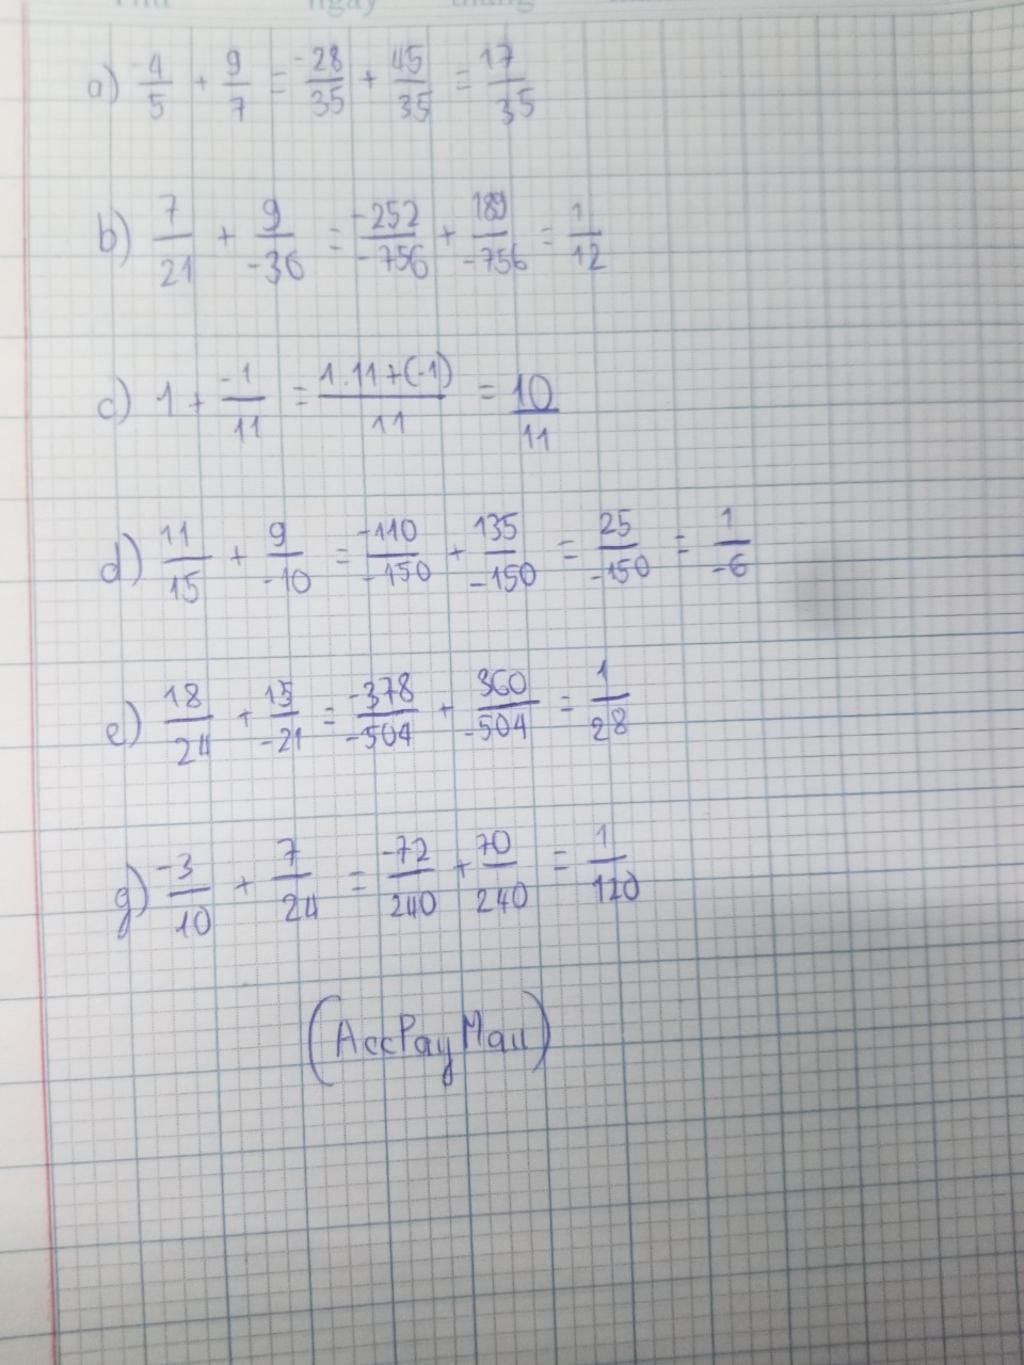 Thứ ngày tháng
a) -4/5 + 9/7 = -28/35 + 45/35 = 17/35
b) 7/21 + 9/-36 = -252/-756 + 189/-756 = 1/12
c) 1 + -1/11 = 1.11+(-1)/11 = 10/11
d) 11/15 + 9/-10 = -110/-150 + 135/-150 = 25/-150 = 1/-6
e) 18/24 + 15/-21 = -378/-504 + 360/-504 = 1/28
g) -3/10 + 7/24 = -72/240 + 70/240 = 1/120
(AccPayMau)